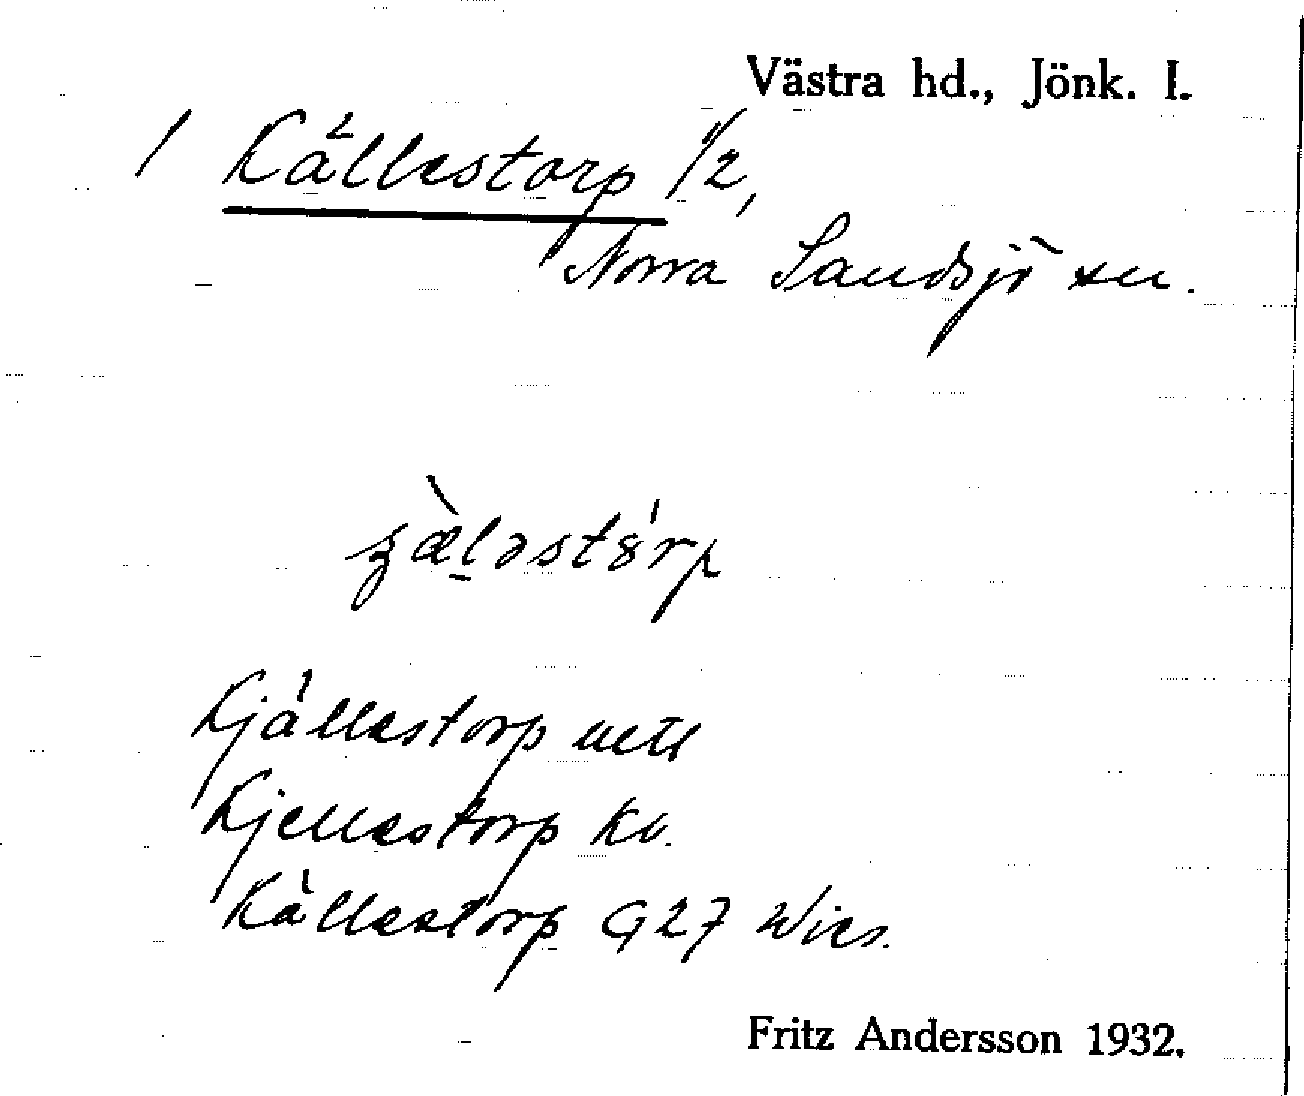 Västra hd., Jönk. l.
1 Källestorp 1/2,
Norra Sandsjö sn.
Kjällestorp
Kjellestorp Kv.
Källestorp G 27 Wies.
Fritz Andersson 1932.